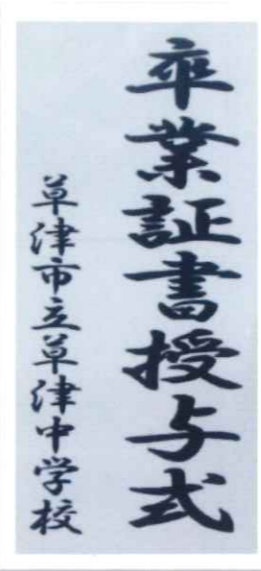 卒業証書授与式
草津市立草津中学校